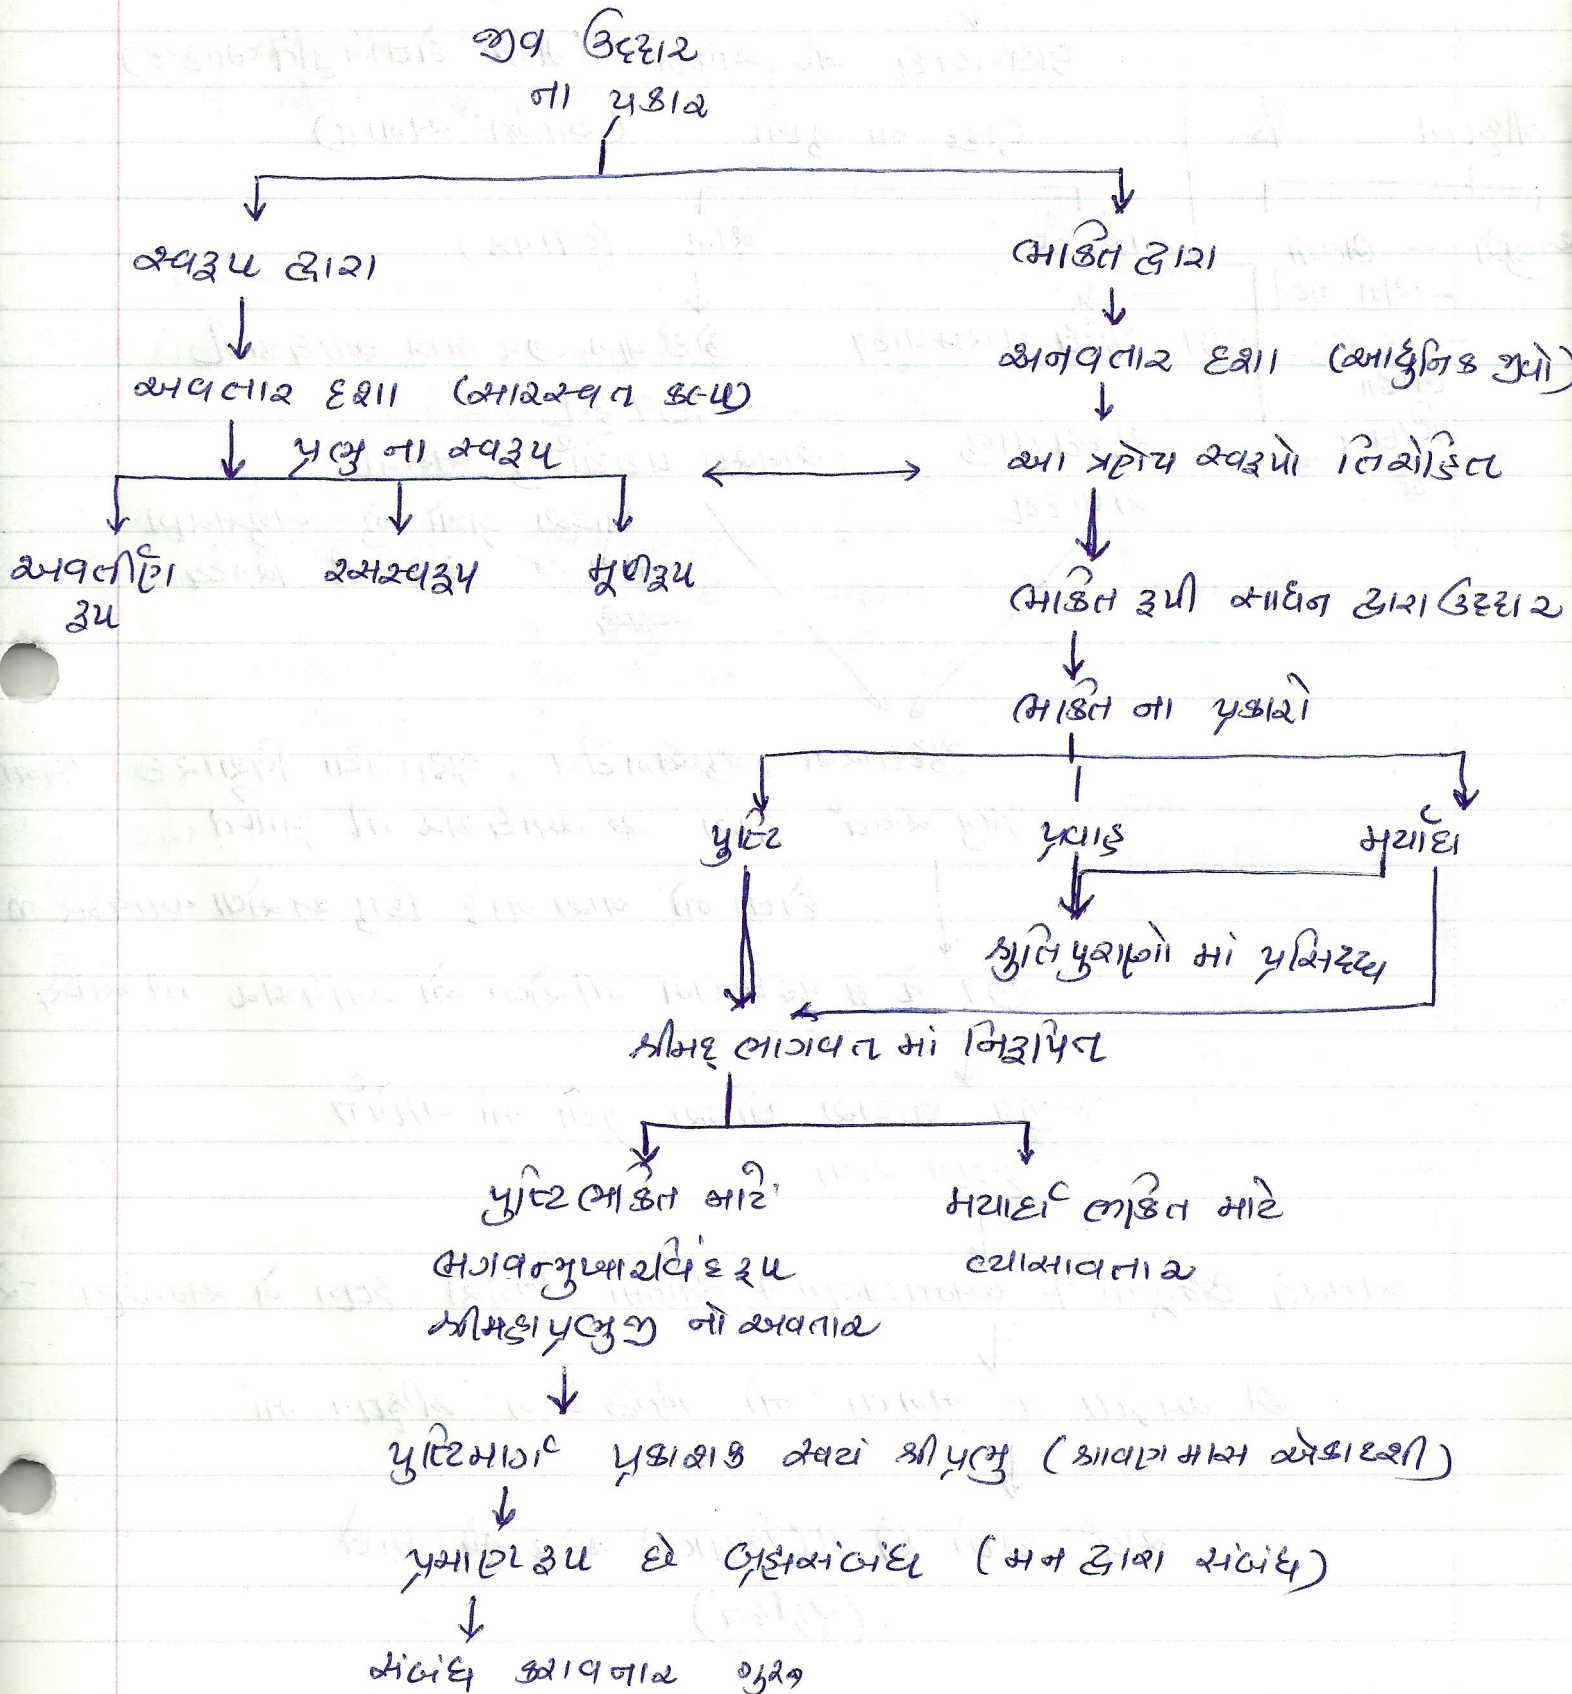 જીવ ઉદ્દાર
ના પ્રકાર
સ્વરૂપ દ્વારા
ભક્તિ દ્વારા
અવતાર દશા (સારસ્વત કલ્પ)
અનવતાર દશા (આધુનિક જીવો)
પ્રભુ ના સ્વરૂપ
આ ત્રણેય સ્વરૂપો તિરોહિત
અવતીર્ણ
રૂપ
રસસ્વરૂપ
મૂળરૂપ
ભક્તિ રૂપી સાધન દ્વારા ઉદ્દાર
ભક્તિ ના પ્રકારો
પુષ્ટિ
પ્રવાહ
મર્યાદા
શ્રુતિપુરાણો માં પ્રસિદ્ધ
શ્રીમદ્ ભાગવત માં નિરૂપિત
પુષ્ટિ ભક્તિ માટે
ભગવન્મુખારવિંદ રૂપ
શ્રીમહાપ્રભુજી નો અવતાર
મર્યાદા ભક્તિ માટે
વ્યાસાવતાર
પુષ્ટિમાર્ગ પ્રકાશક સ્વયં શ્રીપ્રભુ (શ્રાવણ માસ એકાદશી)
પ્રમાણ રૂપ છે બ્રહ્મસંબંધ (મન દ્વારા સંબંધ)
સંબંધ કરાવનાર ગુરુ